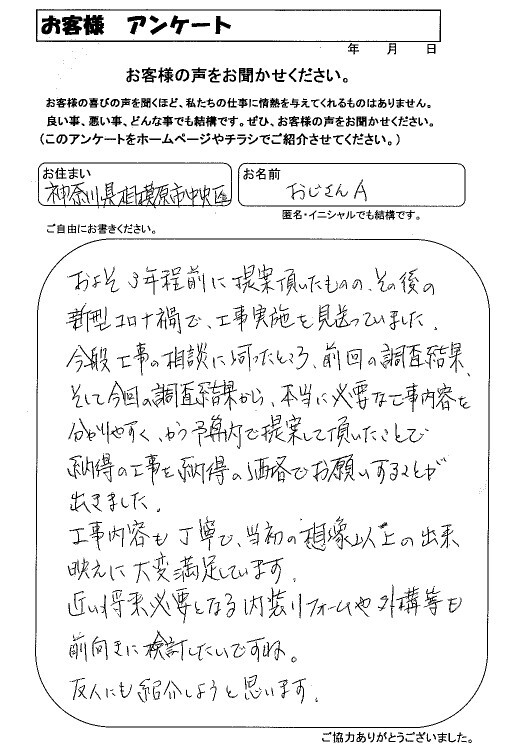 お客様 アンケート
年 月 日
お客様の声をお聞かせください。
お客様の喜びの声を聞くほど、私たちの仕事に情熱を与えてくれるものはありません。
良い事、悪い事、どんな事でも結構です。ぜひ、お客様の声をお聞かせください。
(このアンケートをホームページやチラシでご紹介させてください。)
お住まい
神奈川県相模原市中央区
お名前
おじさんA
匿名・イニシャルでも結構です。
ご自由にお書きください。
およそ3年程前に提案頂いたものの、その後の
新型コロナ禍で、工事実施を見送っていました。
今般工事の相談に伺ったところ、前回の調査結果、
そして今回の調査結果から、本当に必要な工事内容を
分かりやすく、かつ予算内で提案して頂いたことで
納得の工事を納得の価格でお願いすることが
出きました。
工事内容も丁寧で、当初の想像以上の出来
映えに大変満足しています。
近い将来必要となる内装リフォームや外構等も
前向きに検討したいですね。
友人にも紹介しようと思います。
ご協力ありがとうございました。